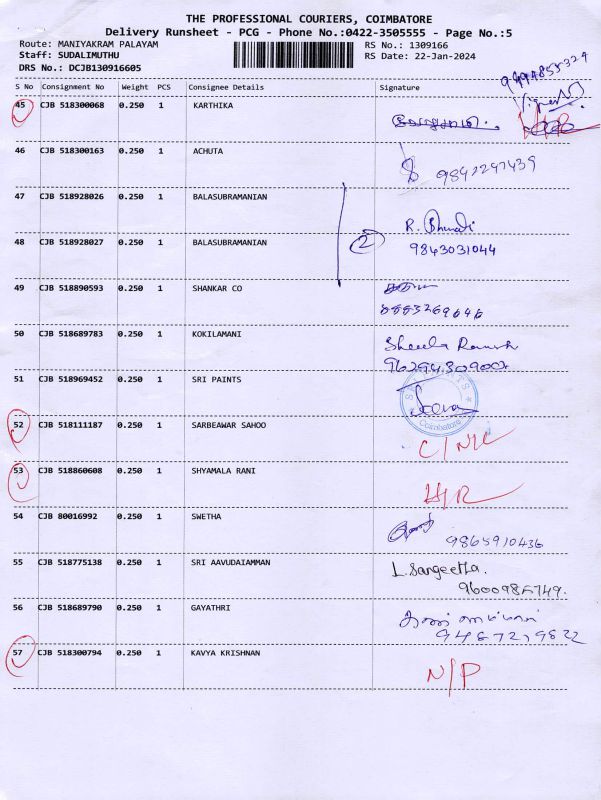 THE PROFESSIONAL COURIERS, COIMBATORE
Delivery Runsheet - PCG - Phone No.:0422-3505555 - Page No.:5
Route: MANIYAKRAM PALAYAM RS No.: 1309166
Staff: SUDALIMUTHU RS Date: 22-Jan-2024
DRS No.: DCJB130916605
S No Consignment No Weight PCS Consignee Details Signature
45 CJB 518300068 0.250 1 KARTHIKA
46 CJB 518300163 0.250 1 ACHUTA 9842247439
47 CJB 518928026 0.250 1 BALASUBRAMANIAN
R.
2
48 CJB 518928027 0.250 1 BALASUBRAMANIAN 9843031044
49 CJB 518890593 0.250 1 SHANKAR CO
50 CJB 518689783 0.250 1 KOKILAMANI
Sheela Ramesh
51 CJB 518969452 0.250 1 SRI PAINTS
Coimbatore
52 CJB 518111187 0.250 1 SARBEAWAR SAHOO
53 CJB 518860608 0.250 1 SHYAMALA RANI
54 CJB 80016992 0.250 1 SWETHA
9865910436
55 CJB 518775138 0.250 1 SRI AAVUDAIAMMAN L. Sangeetha.
56 CJB 518689790 0.250 1 GAYATHRI
57 CJB 518300794 0.250 1 KAVYA KRISHNAN
N/P